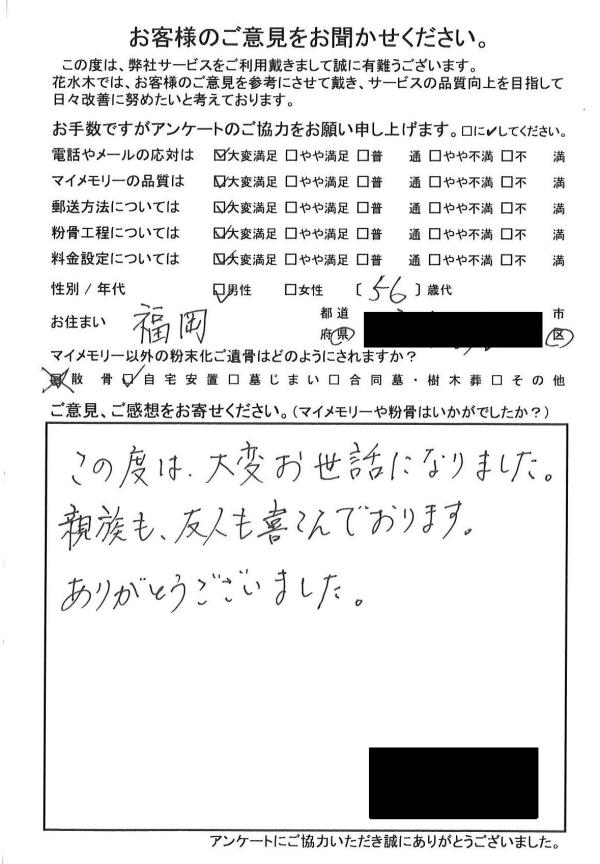 お客様のご意見をお聞かせください。
この度は、弊社サービスをご利用戴きまして誠に有難うございます。
花水木では、お客様のご意見を参考にさせて戴き、サービスの品質向上を目指して
日々改善に努めたいと考えております。
お手数ですがアンケートのご協力をお願い申し上げます。□に✔してください。
電話やメールの応対は ☑大変満足 □やや満足 □普 通 □やや不満 □不 満
マイメモリーの品質は ☑大変満足 □やや満足 □普 通 □やや不満 □不 満
郵送方法については ☑大変満足 □やや満足 □普 通 □やや不満 □不 満
粉骨工程については ☑大変満足 □やや満足 □普 通 □やや不満 □不 満
料金設定については ☑大変満足 □やや満足 □普 通 □やや不満 □不 満
性別 / 年代 ☑男性 □女性 〔 56 〕歳代
お住まい 福岡 都道府県 市区
マイメモリー以外の粉末化ご遺骨はどのようにされますか?
□散骨 ☑自宅安置 □墓じまい □合同墓・樹木葬 □その他
ご意見、ご感想をお寄せください。(マイメモリーや粉骨はいかがでしたか?)
この度は、大変お世話になりました。
親族も、友人も喜んでおります。
ありがとうございました。
アンケートにご協力いただき誠にありがとうございました。